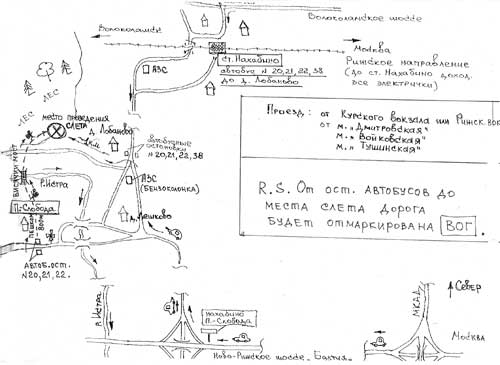 Волоколамское шоссе
Волоколамск
Москва
Рижское направление
(до ст. Нахабино доход.
все электрички)
ст. Нахабино
автобус N 20,21,22,38
до д. Лобаново
АЗС
ЛЕС
ЛЕС
место проведения
слета
д. Лобаново
автобусные
остановки
N 20,21,22,38
1 км
висячий мост
р. Истра
АЗС
(Бензоколонка)
П-Слобода
д. Лешково
пешком
АВТОБ. ОСТ.
N 20, 21, 22.
Проезд: от Курского вокзала или Рижск. вок
от м. „Дмитровская"
м. „Войковская"
м. „Тушинская"
P.S. От ост. АВТОБУСОВ ДО
МЕСТА СЛЕТА ДОРОГА
БУДЕТ ОТМАРКИРОВАНА ВОГ.
Север
МКАД
Москва
р. Истра
Нахабино
П-Слобода
Ново-Рижское шоссе „Балтия"